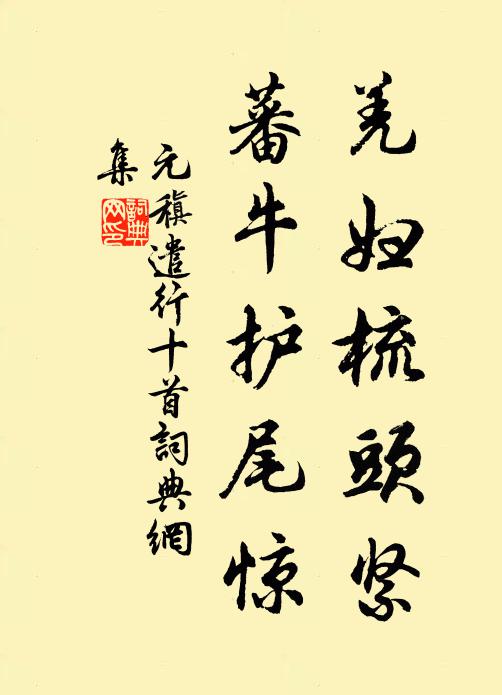 羌妇梳頭紧
蕃牛护尾惊
元稹遣行十首詞典網
集
詞典網印